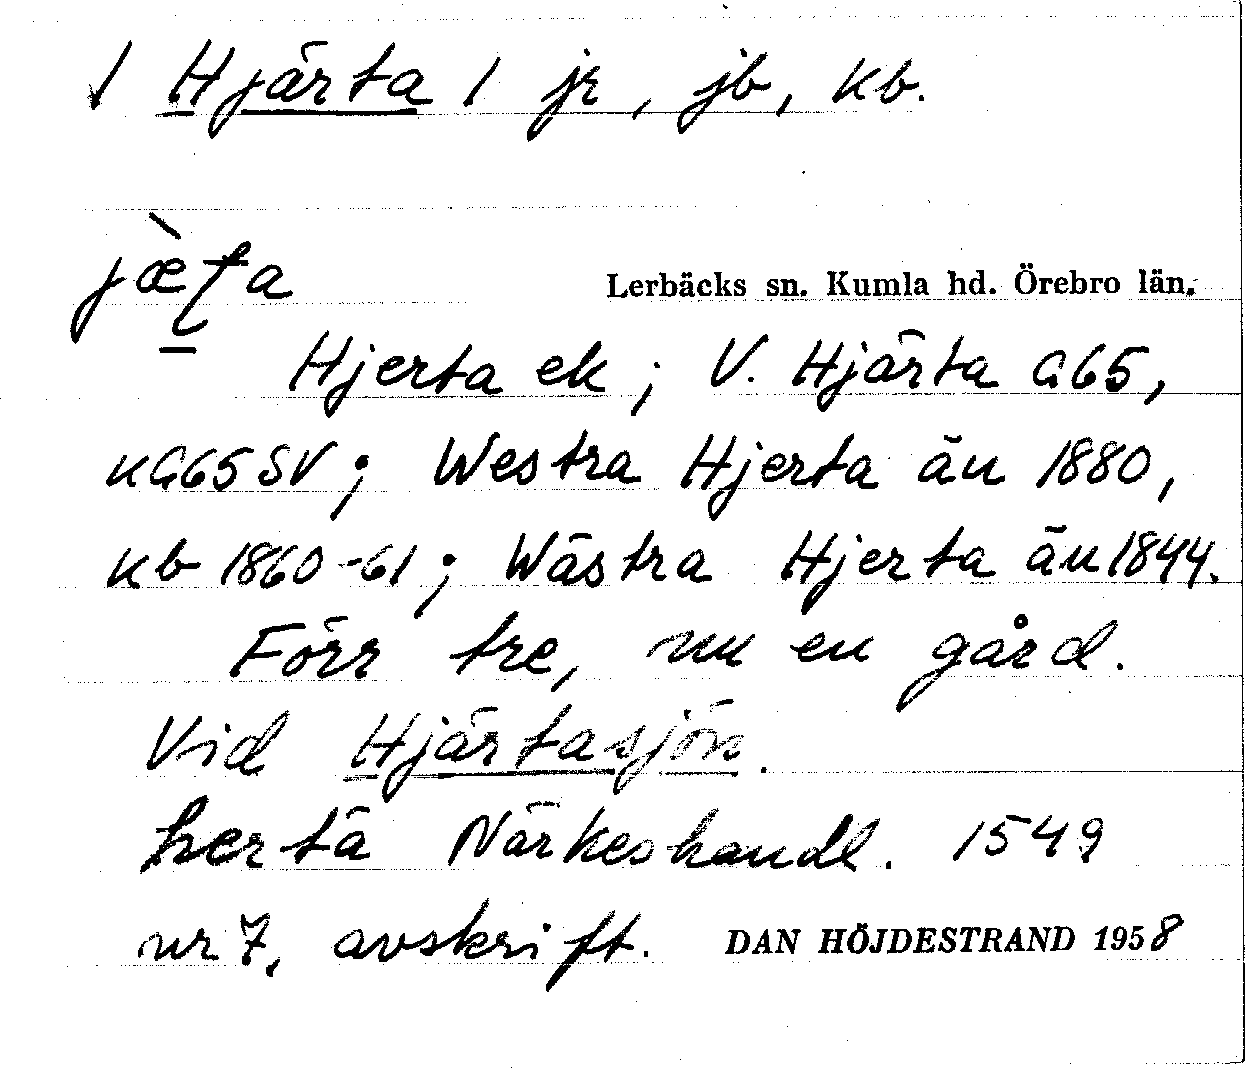 √ Hjärta 1 jr, jb, kb.
jæ̀ʈa
Lerbäcks sn. Kumla hd. Örebro län.
Hjerta ek; V. Hjärta G65,
kG65SV; Westra Hjerta än 1880,
kb 1860-61; Wästra Hjerta än 1844.
Förr tre, nu en gård.
Vid Hjärtasjön.
hertä Närkeshandl. 1549
nr 7, avskrift.
DAN HÖJDESTRAND 1958